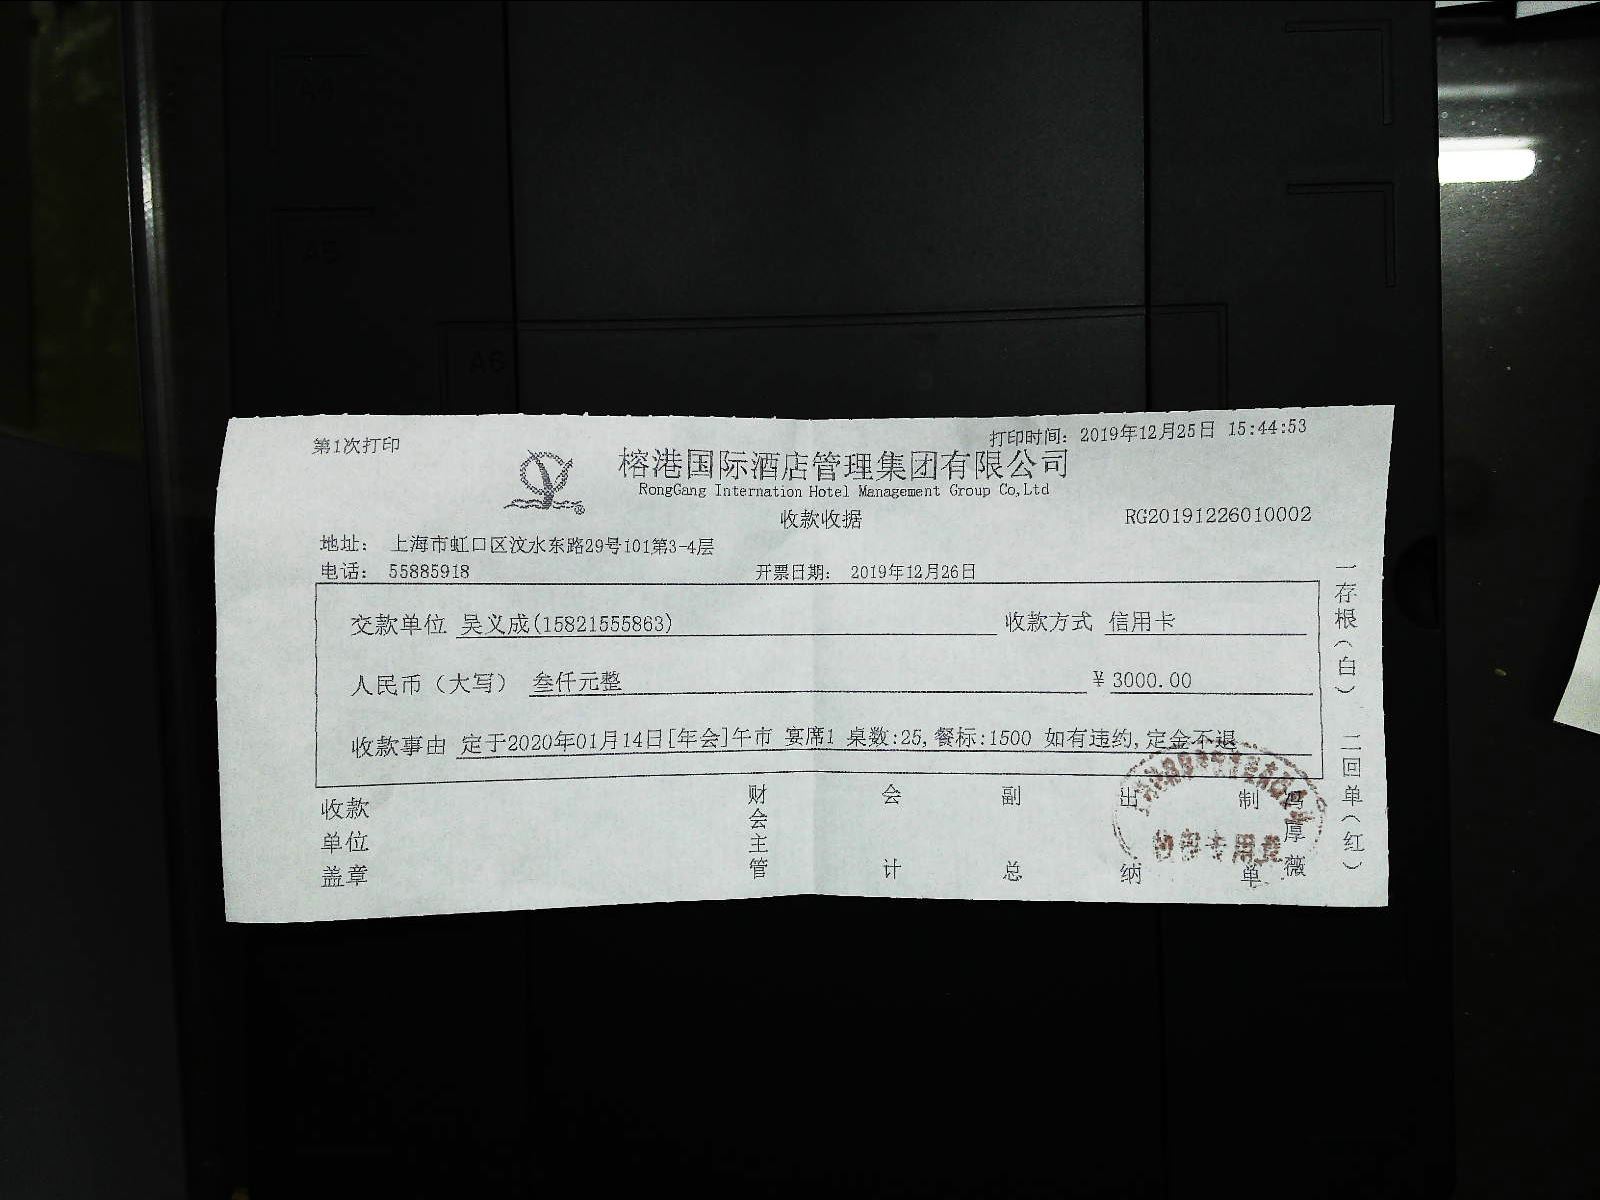 A4
A5
A6
第1次打印
打印时间：2019年12月25日 15:44:53
榕港国际酒店管理集团有限公司
RongGang Internation Hotel Management Group Co,Ltd
收款收据
RG20191226010002
地址： 上海市虹口区汶水东路29号101第3-4层
电话： 55885918
开票日期： 2019年12月26日
交款单位 吴义成(15821555863) 收款方式 信用卡
人民币（大写） 叁仟元整 ¥3000.00
收款事由 定于2020年01月14日[年会]午市 宴席1 桌数:25,餐标:1500 如有违约,定金不退
收款单位盖章
财会主管
会计
副总
出纳
制单
厚薇
一存根（白） 二回单（红）
专用章